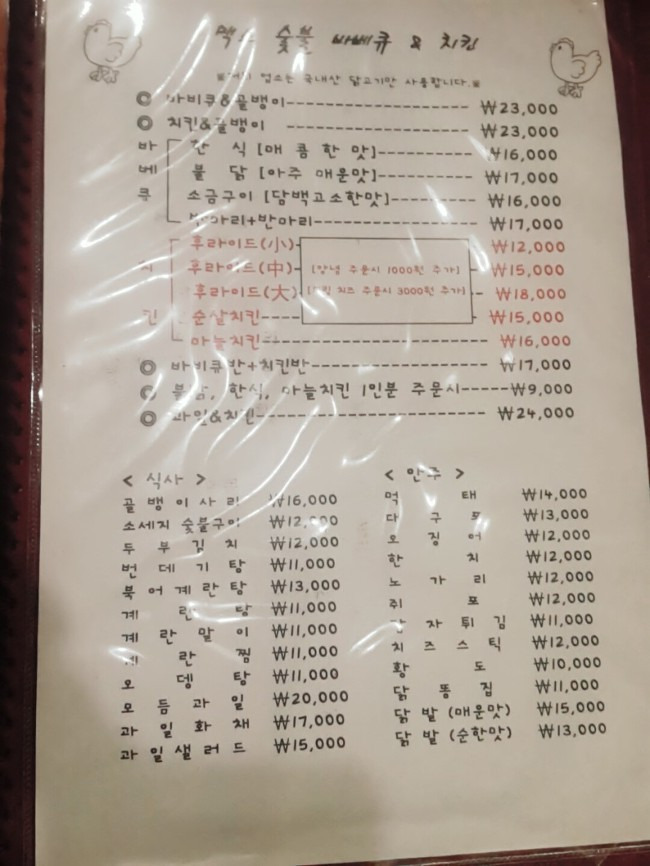 맥스 숯불 바베큐 & 치킨
업소는 국내산 닭고기만 사용합니다.※
◎ 바비큐&골뱅이 ₩23,000
◎ 치킨&골뱅이 ₩23,000
바베큐
한 식 [매 콤 한 맛] ₩16,000
불 닭 [아주 매운맛] ₩17,000
소금구이 [담백고소한맛] ₩16,000
반마리+반마리 ₩17,000
후라이드(小) ₩12,000
후라이드(中) [양념 주문시 1000원 추가] ₩15,000
후라이드(大) 치즈 주문시 3000원 추가] ₩18,000
순살치킨 ₩15,000
마늘치킨 ₩16,000
◎ 바비큐반+치킨반 ₩17,000
◎ 불닭, 한식, 마늘치킨 1인분 주문시 ₩9,000
◎ 과일&치킨 ₩24,000
< 식사 >
골 뱅 이 사 리 ₩16,000
소세지 숯불구이 ₩12,000
두 부 김 치 ₩12,000
번 데 기 탕 ₩11,000
북 어 계 란 탕 ₩13,000
계 란 탕 ₩11,000
계 란 말 이 ₩11,000
계 란 찜 ₩11,000
오 뎅 탕 ₩11,000
모 듬 과 일 ₩20,000
과 일 화 채 ₩17,000
과 일 샐 러 드 ₩15,000
< 안주 >
먹 태 ₩14,000
대 구 포 ₩13,000
오 징 어 ₩12,000
한 치 ₩12,000
노 가 리 ₩12,000
쥐 포 ₩12,000
감 자 튀 김 ₩11,000
치 즈 스 틱 ₩12,000
황 도 ₩10,000
닭 똥 집 ₩11,000
닭 발 (매운맛) ₩15,000
닭 발 (순한맛) ₩13,000